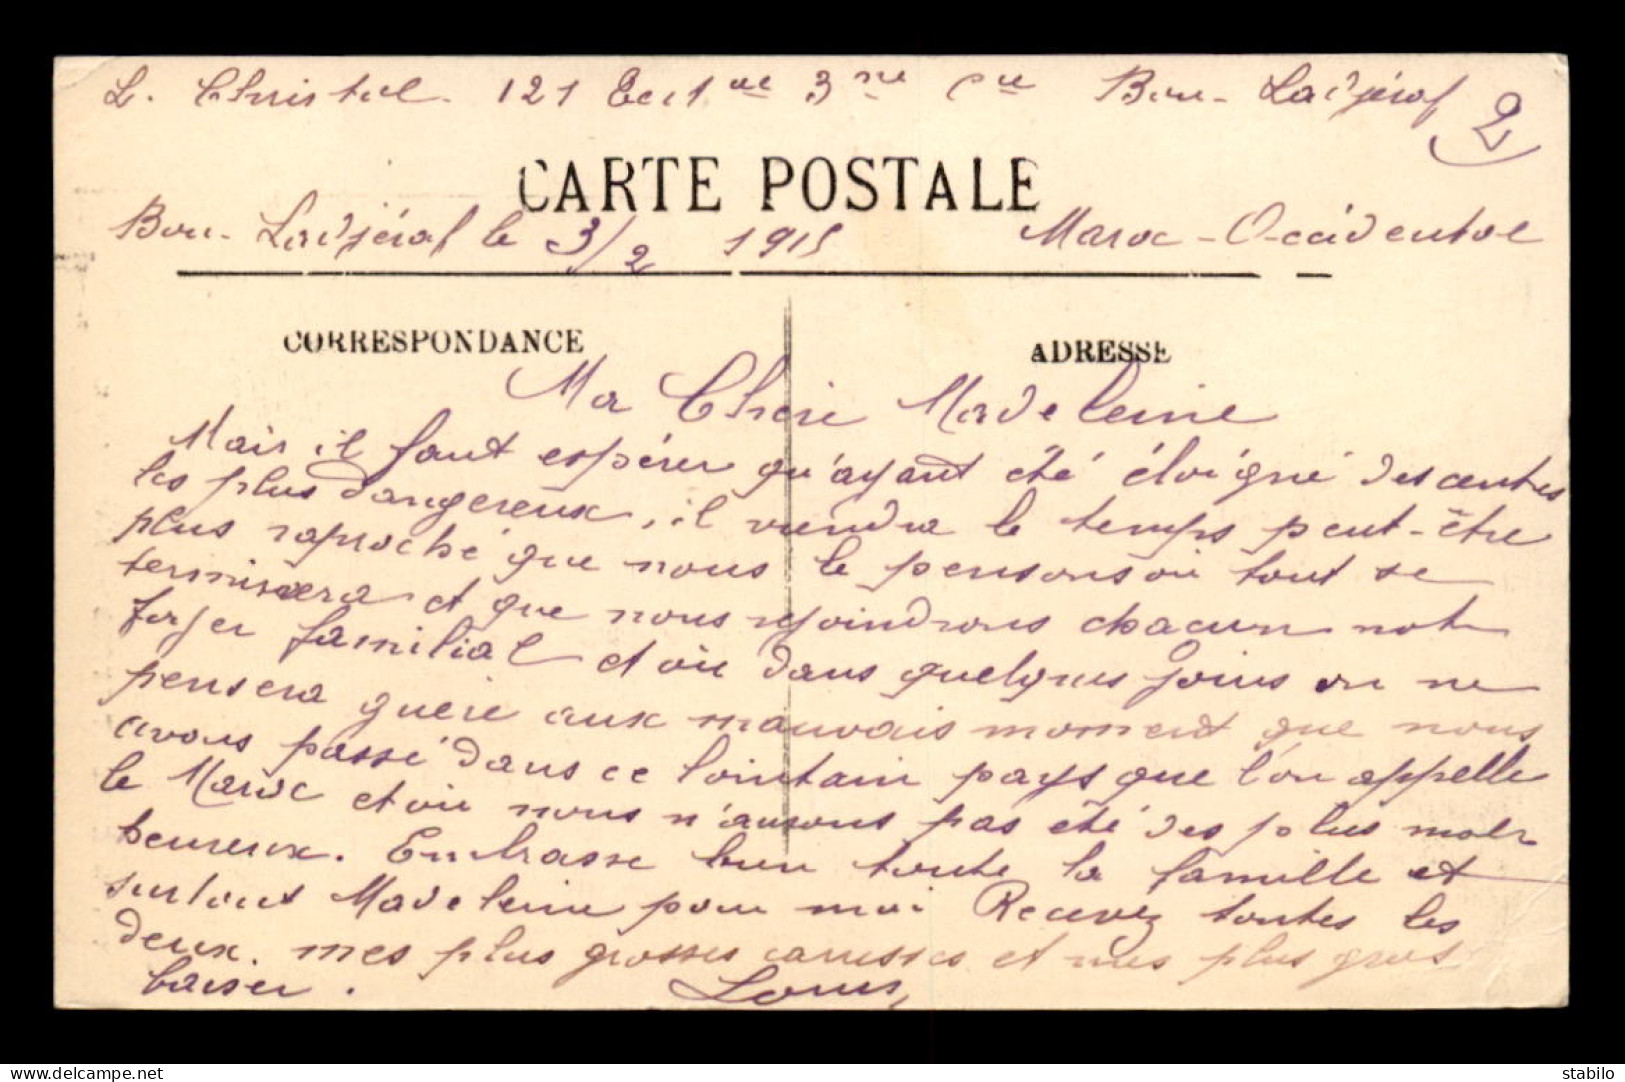 L. Christol. 121 3me Cie Bou-Ladjéraf 2
CARTE POSTALE
Bou-Ladjéraf le 3/2 1915 Maroc-Occidental
CORRESPONDANCE ADRESSE
Ma Chère Madeleine
Mais il faut espérer qu'ayant été éloigné des centres
les plus dangereux, il viendra le temps peut-être
plus raproché que nous le pensons où tout se
terminera et que nous rejoindrons chacun not
foyer familial et où dans quelques jours on ne
pensera guère aux mauvais moment que nous
avons passé dans ce lointain pays que l'on appelle
le Maroc et où nous n'aurons pas été des plus mal
heureux. Embrasse bien toute la famille et
surtout Madeleine pour moi Recevez toutes les
deux. mes plus grosses caresses et mes plus gros
baiser. Louis,
delcampe.net
stabilo